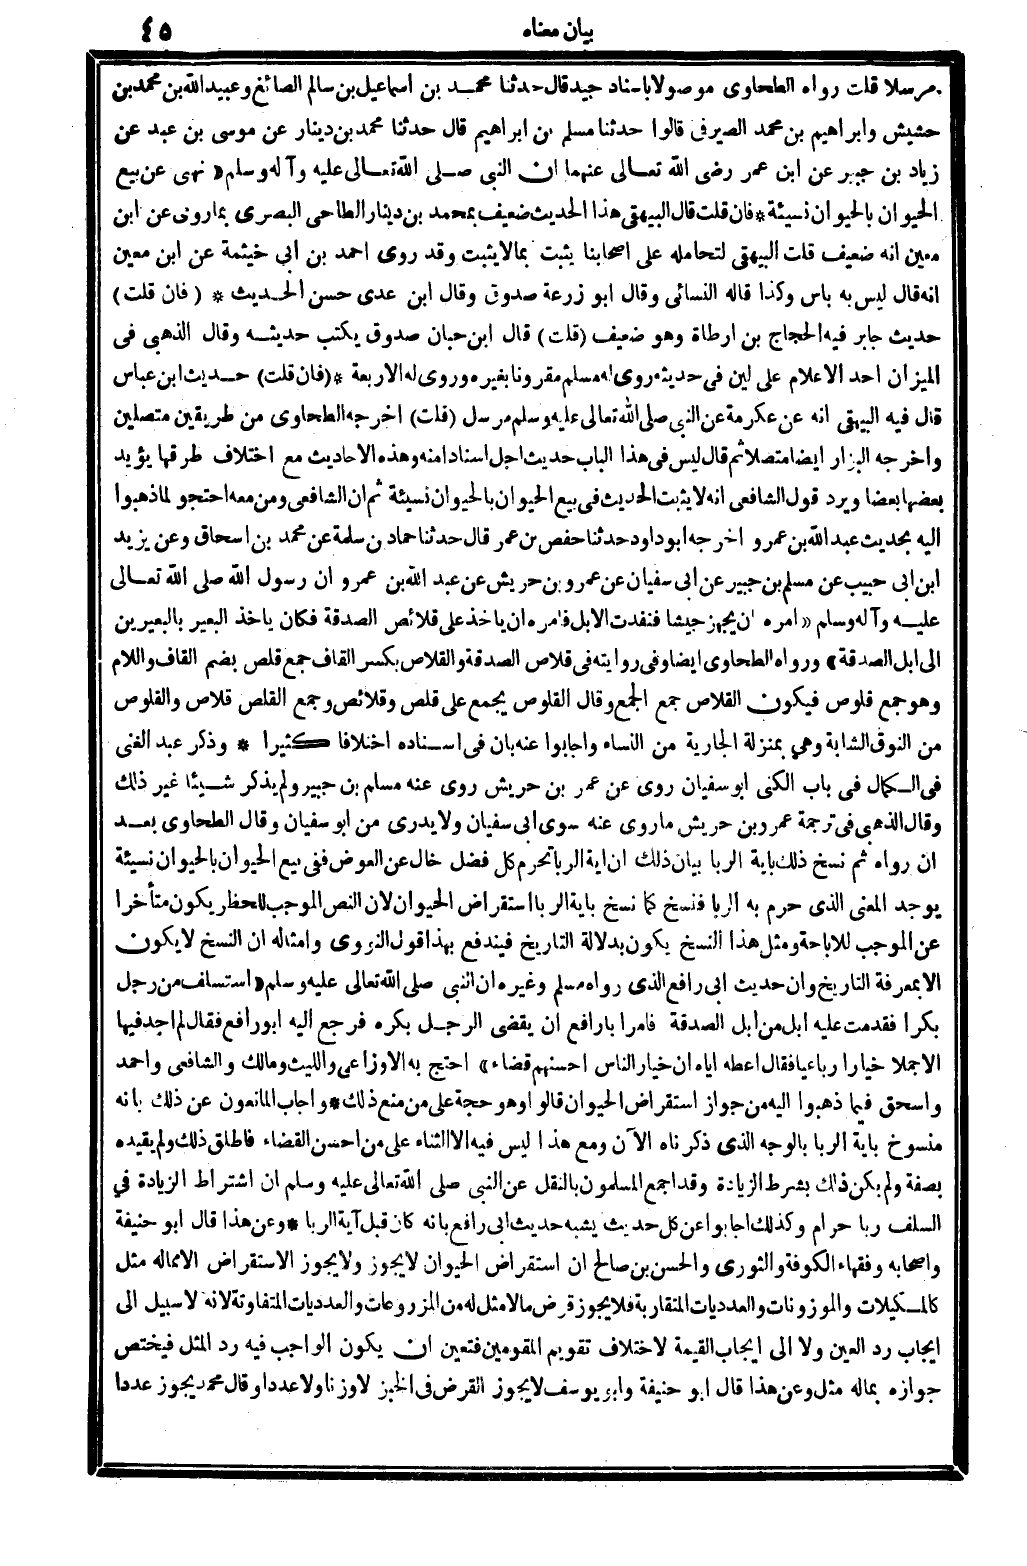 بيان معناه ٤٥
مرسلا قلت رواه الطحاوى موصولا باسناد جيد قال حدثنا محمد بن اسماعيل بن سالم الصائغ وعبيد الله بن محمد بن
حشيش وابراهيم بن محمد الصيرفى قالوا حدثنا مسلم بن ابراهيم قال حدثنا محمد بن دينار عن موسى بن عبد عن
زياد بن جبير عن ابن عمر رضى الله تعالى عنهما ان النبى صلى الله تعالى عليه وآله وسلم « نهى عن بيع
الحيوان بالحيوان نسيئة * فان قلت قال البيهقى هذا الحديث ضعيف بمحمد بن دينار الطاحى البصرى بما روى عن ابن
معين انه ضعيف قلت البيهقى لتحامله على اصحابنا يثبت بما لا يثبت وقد روى احمد بن ابي خيثمة عن ابن معين
انه قال ليس به باس وكذا قاله النسائى وقال ابو زرعة صدوق وقال ابن عدى حسن الحديث * ( فان قلت )
حديث جابر فيه الحجاج بن ارطاة وهو ضعيف (قلت) قال ابن حبان صدوق يكتب حديثه وقال الذهبى فى
الميزان احد الاعلام على لين فى حديثه روى له مسلم مقرونا بغيره وروى له الاربعة * (فان قلت) حديث ابن عباس
قال فيه البيهقى انه عن عكرمة عن النبى صلى الله تعالى عليه وسلم مرسل (قلت) اخرجه الطحاوى من طريقين متصلين
واخرجه البزار ايضا متصلا ثم قال ليس فى هذا الباب حديث اجل اسنادا منه وهذه الاحاديث مع اختلاف طرقها يؤيد
بعضها بعضا ويرد قول الشافعى انه لا يثبت الحديث فى بيع الحيوان بالحيوان نسيئة ثم ان الشافعى ومن معه احتجو لما ذهبوا
اليه بحديث عبد الله بن عمرو اخرجه ابو داود حدثنا حفص بن عمر قال حدثنا حماد بن سلمة عن محمد بن اسحاق وعن يزيد
ابن ابى حبيب عن مسلم بن جبير عن ابى سفيان عن عمرو بن حريش عن عبد الله بن عمرو ان رسول الله صلى الله تعالى
عليه وآله وسلم « امره ان يجهز جيشا فنفدت الابل فامره ان ياخذ على قلائص الصدقة فكان ياخذ البعير بالبعيرين
الى ابل الصدقة » ورواه الطحاوى ايضا وفى روايته فى قلاص الصدقة والقلاص بكسر القاف جمع قلص بضم القاف واللام
وهو جمع قلوص فيكون القلاص جمع الجمع وقال القلوص يجمع على قلص وقلائص وجمع القلص قلاص والقلوص
من النوق الشابة وهي بمنزلة الجارية من النساء واجابوا عنه بان فى اسناده اختلافا كثيرا * وذكر عبد الغنى
فى الكمال فى باب الكنى ابو سفيان روى عن عمر بن حريش روى عنه مسلم بن جبير ولم يذكر شيئا غير ذلك
وقال الذهبى فى ترجمة عمرو بن حريش ماروى عنه سوى ابى سفيان ولا يدرى من ابو سفيان وقال الطحاوى بعد
ان رواه ثم نسخ ذلك باية الربا بيان ذلك ان اية الربا تحرم كل فضل خال عن العوض ففى بيع الحيوان بالحيوان نسيئة
يوجد المعنى الذى حرم به الربا فنسخ كما نسخ باية الربا استقراض الحيوان لان النص الموجب للحظر يكون متأخرا
عن الموجب للاباحة ومثل هذا النسخ يكون بدلالة التاريخ فيندفع بهذا قول النووى وامثاله ان النسخ لا يكون
الا بمعرفة التاريخ وان حديث ابى رافع الذى رواه مسلم وغيره ان النبى صلى الله تعالى عليه وسلم « استسلف من رجل
بكرا فقدمت عليه ابل من ابل الصدقة فامر ابا رافع ان يقضى الرجل بكره فرجع اليه ابو رافع فقال لم اجد فيها
الا جملا خيارا رباعيا فقال اعطه اياه ان خيار الناس احسنهم قضاء » احتج به الاوزاعى والليث ومالك والشافعى واحمد
واسحق فيما ذهبوا اليه من جواز استقراض الحيوان قالوا وهو حجة على من منع ذلك * واجاب المانعون عن ذلك بانه
منسوخ باية الربا بالوجه الذى ذكرناه الآن ومع هذا ليس فيه الا الثناء على من احسن القضاء فاطلق ذلك ولم يقيده
بصفة ولم يكن ذلك بشرط الزيادة وقد اجمع المسلمون بالنقل عن النبى صلى الله تعالى عليه وسلم ان اشتراط الزيادة في
السلف ربا حرام وكذلك اجابوا عن كل حديث يشبه حديث ابى رافع بانه كان قبل آية الربا * وعن هذا قال ابو حنيفة
واصحابه وفقهاء الكوفة والثورى والحسن بن صالح ان استقراض الحيوان لا يجوز ولا يجوز الاستقراض الا مماله مثل
كالمكيلات والموزونات والعدديات المتقاربة فلا يجوز قرض مالا مثل له من المزروعات والعدديات المتفاوتة لانه لا سبيل الى
ايجاب رد العين ولا الى ايجاب القيمة لاختلاف تقويم المقومين فتعين ان يكون الواجب فيه رد المثل فيختص
جوازه بماله مثل وعن هذا قال ابو حنيفة وابو يوسف لا يجوز القرض فى الخبز لا وزنا ولا عددا وقال محمد يجوز عددا